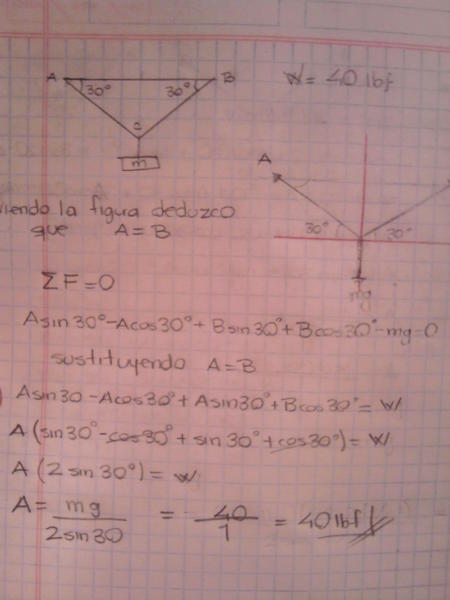 A 30° 30° B
W = 40 lbf
C
m
A
30° 30°
mg
viendo la figura deduzco
que A = B
ΣF = 0
Asin30° - Acos30° + Bsin30° + Bcos30° - mg = 0
sustituyendo A = B
Asin30 - Acos30° + Asin30° + Bcos30° = W
A (sin30° - cos30° + sin30° + cos30°) = W
A (2 sin 30°) = W
A = mg / 2sin30 = 40 / 1 = 40 lbf